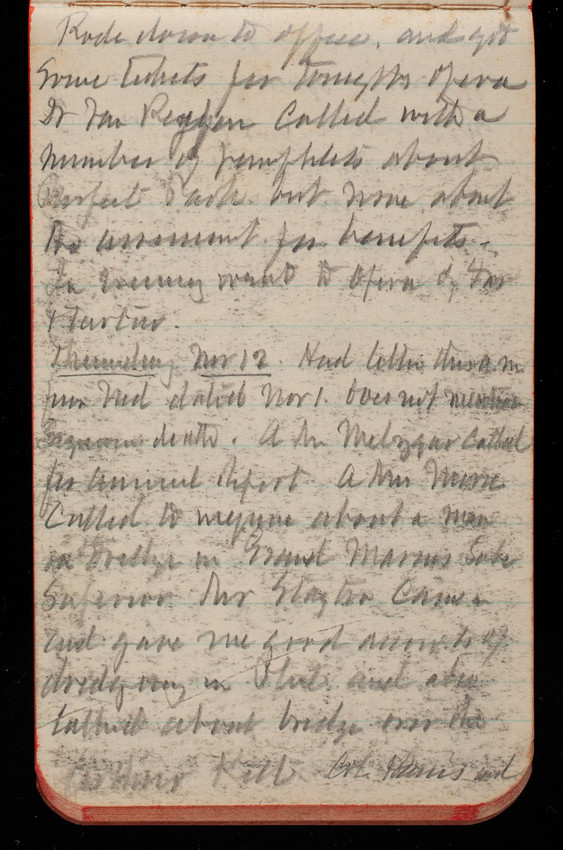 Rode down to office. and got
some tickets for tonights opera
Dr Van called with a
number of pamphlets about
Prospect Park. but none about
the assessment for benefits.
In Evening went to opera of
Thursday Nov 12. Had letter this a.m.
from Ned dated Nov 1. Does not mention
death. A Mr called
for annual report. A Mr
Called to inquire about a man
on dredge in Grand Marais Lake
Superior. Mr Came in
and gave me good accounts of
dredging in and also
talked about bridge over the
Kill. Col. Harris and